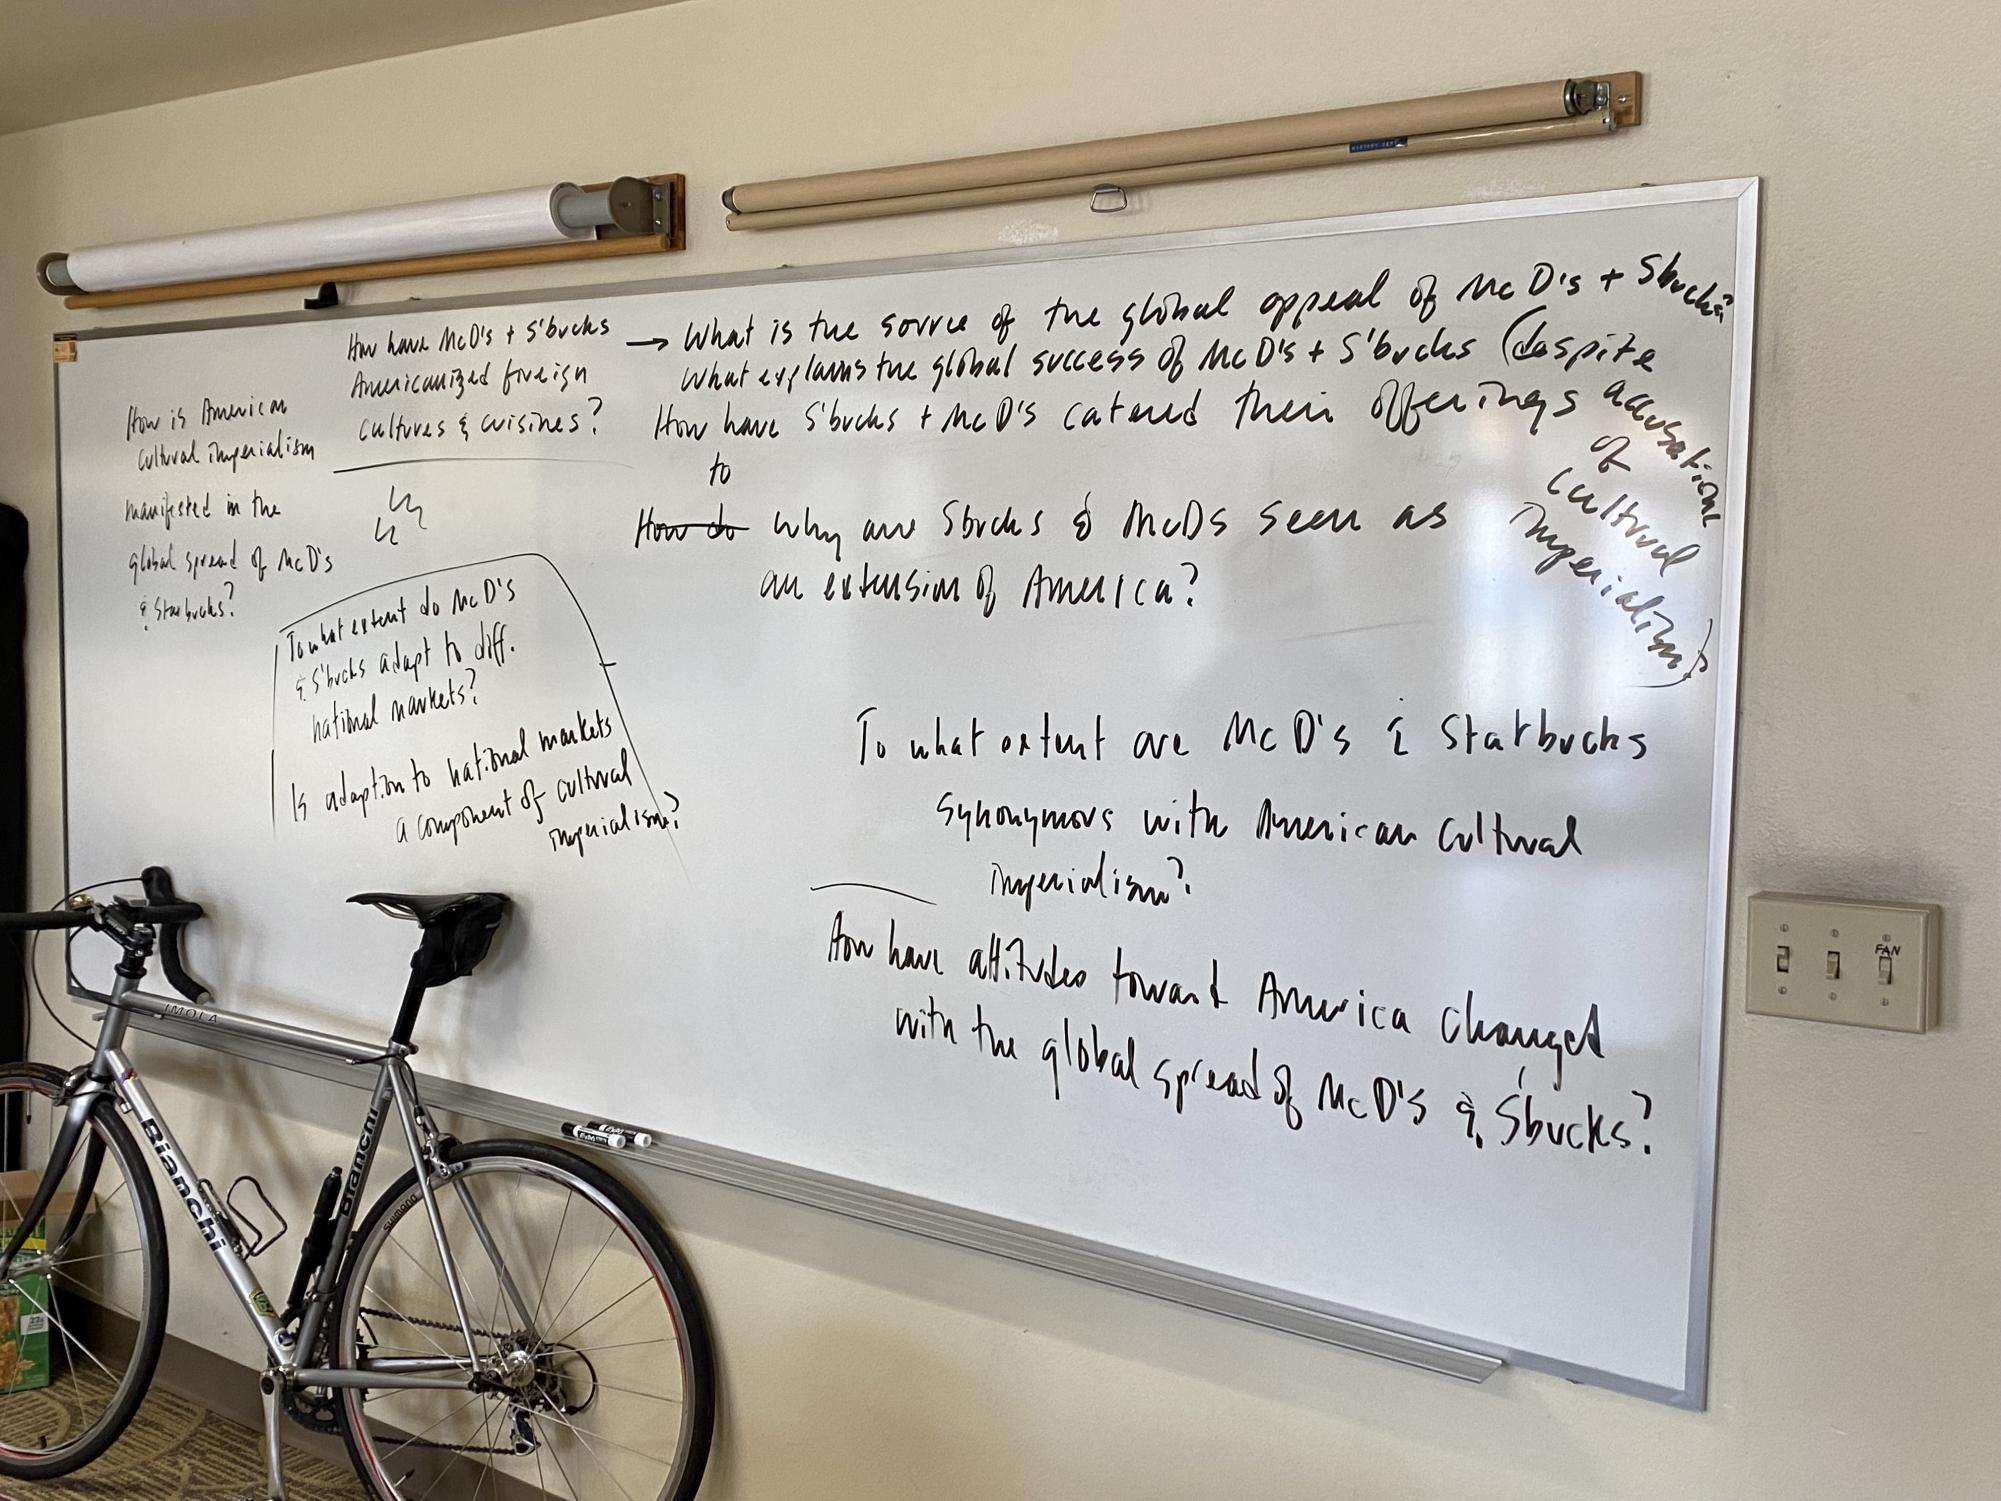 How is American
cultural imperialism
manifested in the
global spread of McD's
& Starbucks?
How have McD's + S'bucks
Americanized foreign
cultures & cuisines?
→ What is the source of the global appeal of McD's + Sbucks?
What explains the global success of McD's + S'bucks (despite
accusations
of
cultural
imperialism)?
How have S'bucks + McD's catered their offerings
to
How do Why are Sbucks & McDs seen as
an extension of America?
To what extent do McD's
& S'bucks adapt to diff.
national markets?
Is adaption to national markets
a component of cultural
imperialism?
To what extent are McD's & Starbucks
synonymous with American cultural
imperialism?
How have attitudes toward America changed
with the global spread of McD's & S'bucks?
FAN
IMOLA
Bianchi
Bianchi
SHIMANO
EXPO
EXPO